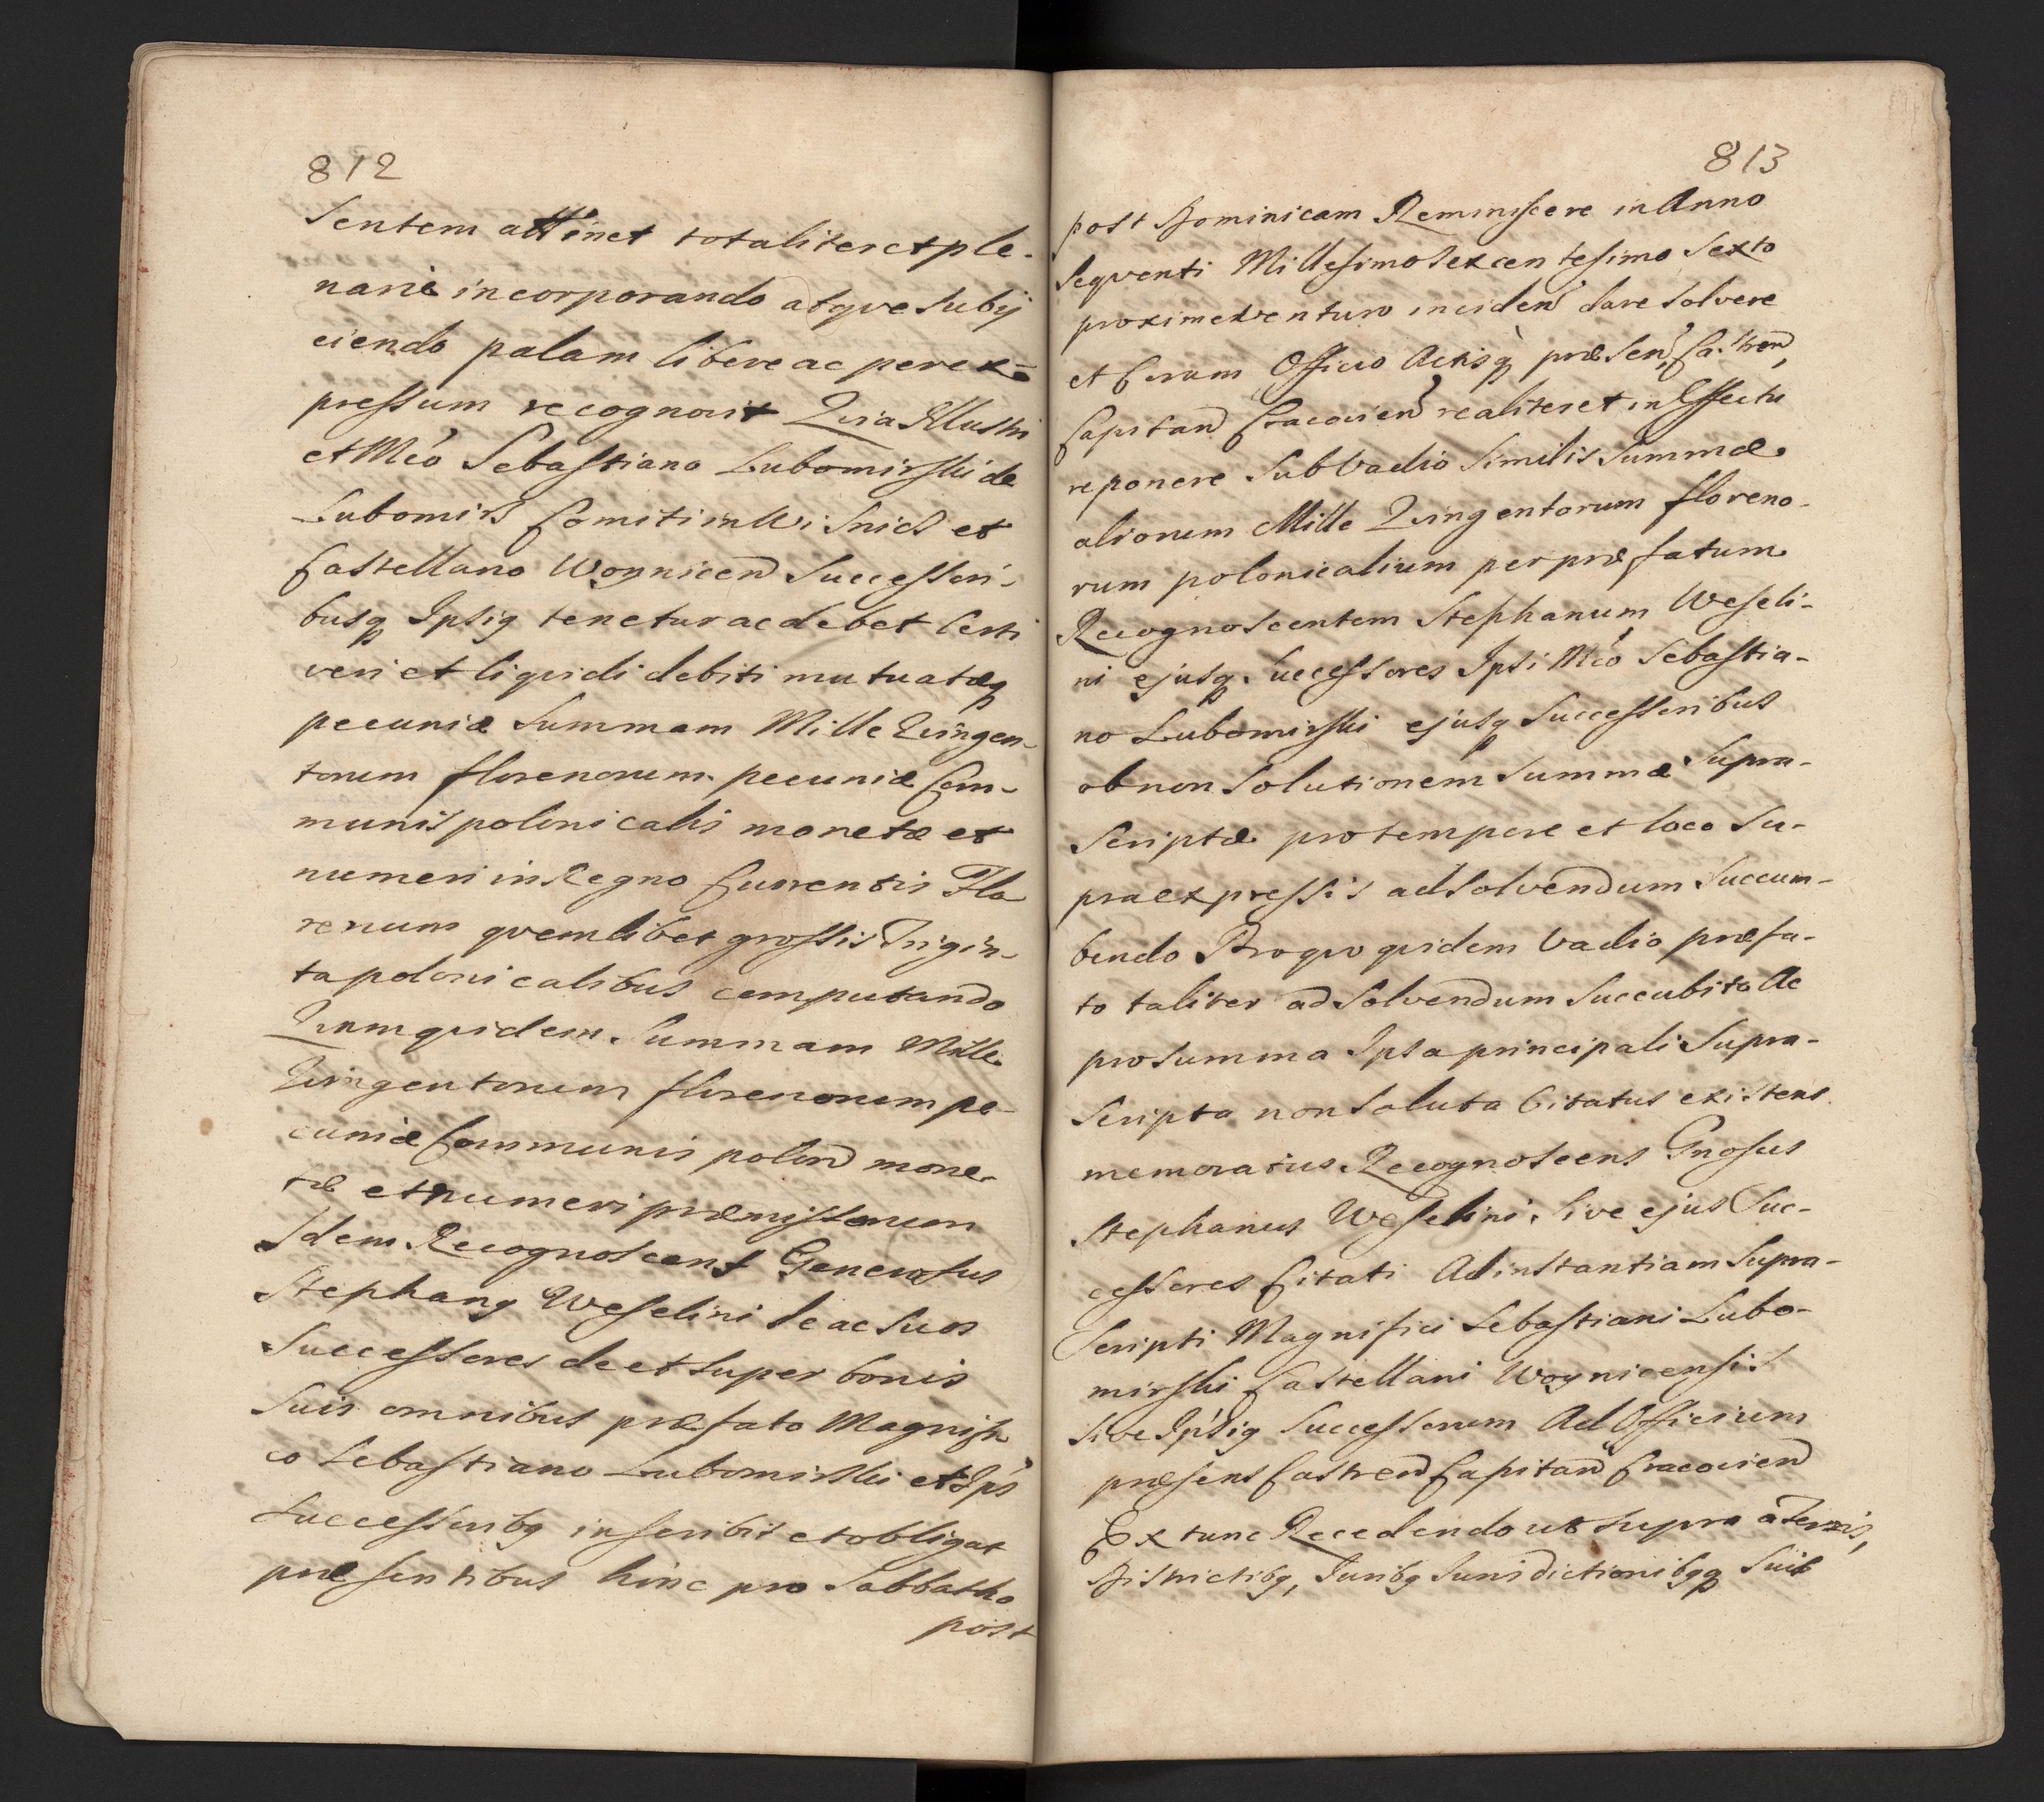 812
sentem attinet totaliter et ple-
narie incorporando atqve subij
ciendo palam libere ac per ex-
pressum recognovit Qvia Illustri
et Mco Sebastiano Lubomirski de
Lubomirz Comiti in Wisnicz et
Castellano Woynicen Successori-
busq Ipsig tenetur ac debet Certi
veri et liqvidi debiti mutuatæq
pecuniæ Summam Mille Qvingen-
torum florenorum pecuniæ Com-
munis polonicalis monetæ et
numeri in Regno Currentis Flo
renum qvemlibet grossis Trigin-
ta polonicalibus computando
Qvam qvidem Summam Mille
Qvingentorum florenorum pe-
cuniæ Communis polon mone-
tæ et numeri præmissorum
Idem Recognoscens Generosus
Stephang Weselini se ac suos
Successores de et super bonis
suis omnibus præfato Magnifi
co Sebastiano Lubomirski et Ips
Successoribg inscribit et obligat
præsentibus hinc pro Sabbatho
post
813
post Dominicam Reminiscere in Anno
seqventi Millesimo Sexcentesimo Sexto
proxime venturo inciden dare solvere
et Coram Officio Actisq præsen Castren,
Capitan Cracovien realiter et in Effectu
reponere Sub Vadio Similis Summæ
aliorum Mille Qvingentorum floreno-
rum polonicalium per præfatum
Recognoscentem Stephanum Weseli-
ni ejusq Successores Ipsi Mco Sebastia-
no Lubomirski ejusq Successoribus
ob non Solutionem Summæ Supra-
scriptæ pro tempore et loco Su-
praexpressis ad solvendum Succum-
bendo Pro qvo qvidem Vadio præfa-
to taliter ad Solvendum Succubito Ac
pro summa Ipsa principali Supra-
scripta non Soluta Citatus existens
memoratus Recognoscens Gnosus
Stephanus Weselini sive ejus Suc-
cessores Citati Ad instantiam Supra-
scripti Magnifici Sebastiani Lubo-
mirski Castellani Woynicensis
sive Ipsig Successorum Ad Officium
præsens Castren Capitan Cracovien
Ex tunc Recedendo ut supra a Terris,
Districtibg, Juribg Jurisdictionibgq suis